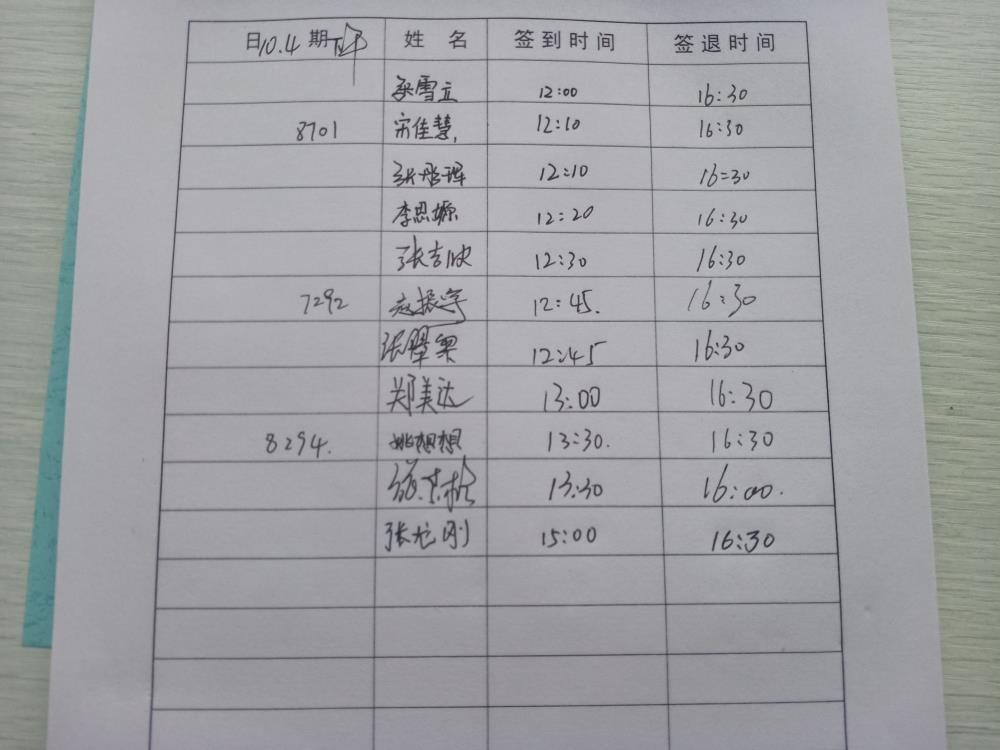 日期 10.4 下午 姓 名 签到时间 签退时间
梁雪立 12:00 16:30
8701 宋佳慧, 12:10 16:30
12:10 16=30
李思嫄 12:20 16:30
张吉欣 12:30 16:30
7292 赵振宇 12:45. 16:30
12:45 16:30
郑美达 13:00 16:30
8294. 姚想想 13:30. 16:30
13:30 16:00.
张龙刚 15:00 16:30